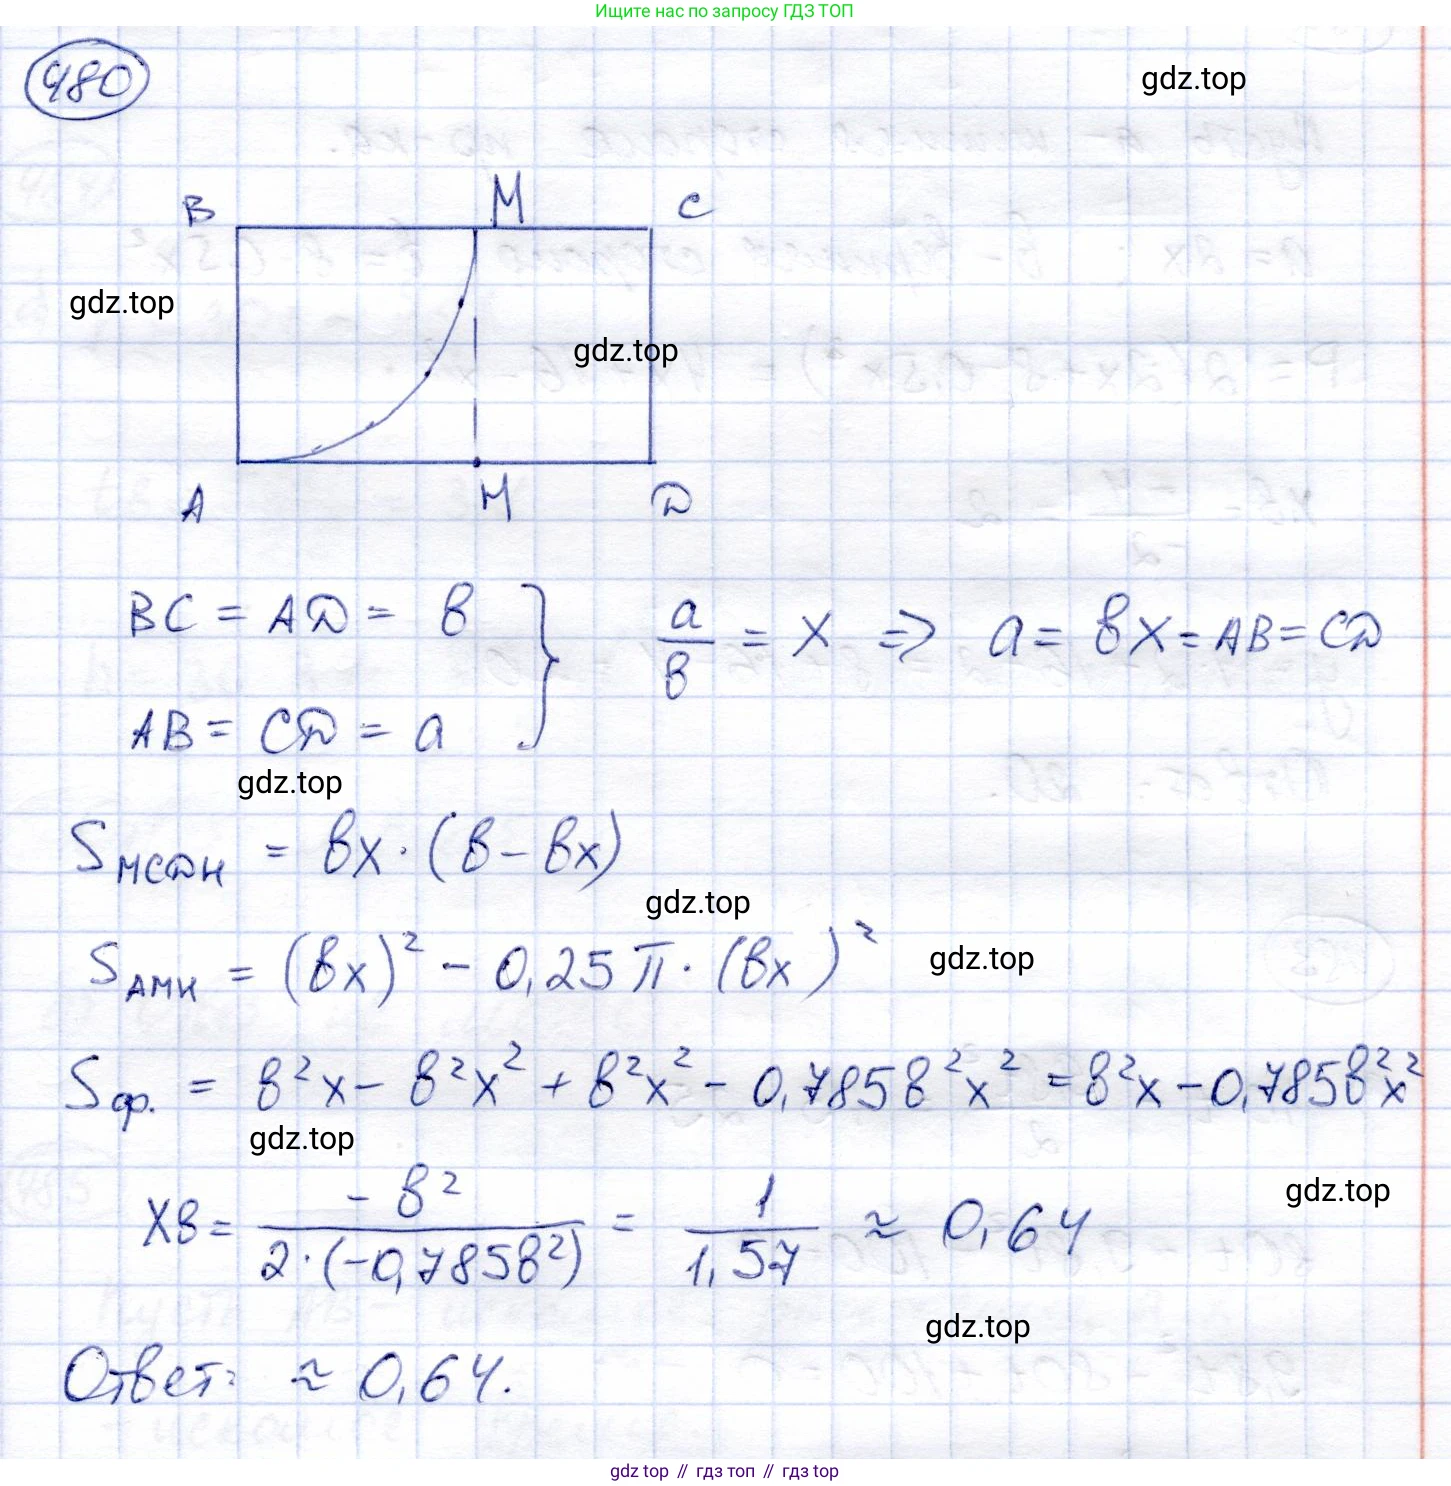 Ищите нас по запросу ГДЗ ТОП
480
gdz.top
В M С
gdz.top
gdz.top
А H D
BC = AD = в
a/в = x ⇒ a = вx = AB = CD
AB = CD = a
gdz.top
S_MCDH = вx · (в - вx)
gdz.top
S_AMH = (вx)² - 0,25 π · (вx)²
gdz.top
Sф. = в²x - в²x² + в²x² - 0,785в²x² = в²x - 0,785в²x²
gdz.top
gdz.top
xв = -в² / 2·(-0,785в²) = 1 / 1,57 ≈ 0,64
gdz.top
Ответ: ≈ 0,64.
gdz top // гдз топ // гдз top